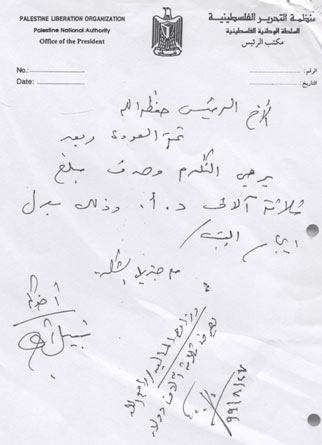 PALESTINE LIBERATION ORGANIZATION
Palestinian National Authority
Office of the President
منظمة التحرير الفلسطينية
السلطة الوطنية الفلسطينية
مكتب الرئيس
No.:
Date:
الرقم:
التاريخ:
الأخ الرئيس حفظه الله
تحية العودة وبعد
يرجى التكرم وصرف مبلغ
ثلاثة آلاف د.أ. وذلك بدل
ايجار البيت
مع جزيل الشكر
أخوكم
نبيل
وزارة المالية / رام الله
يصرف ثلاثة آلاف دولار